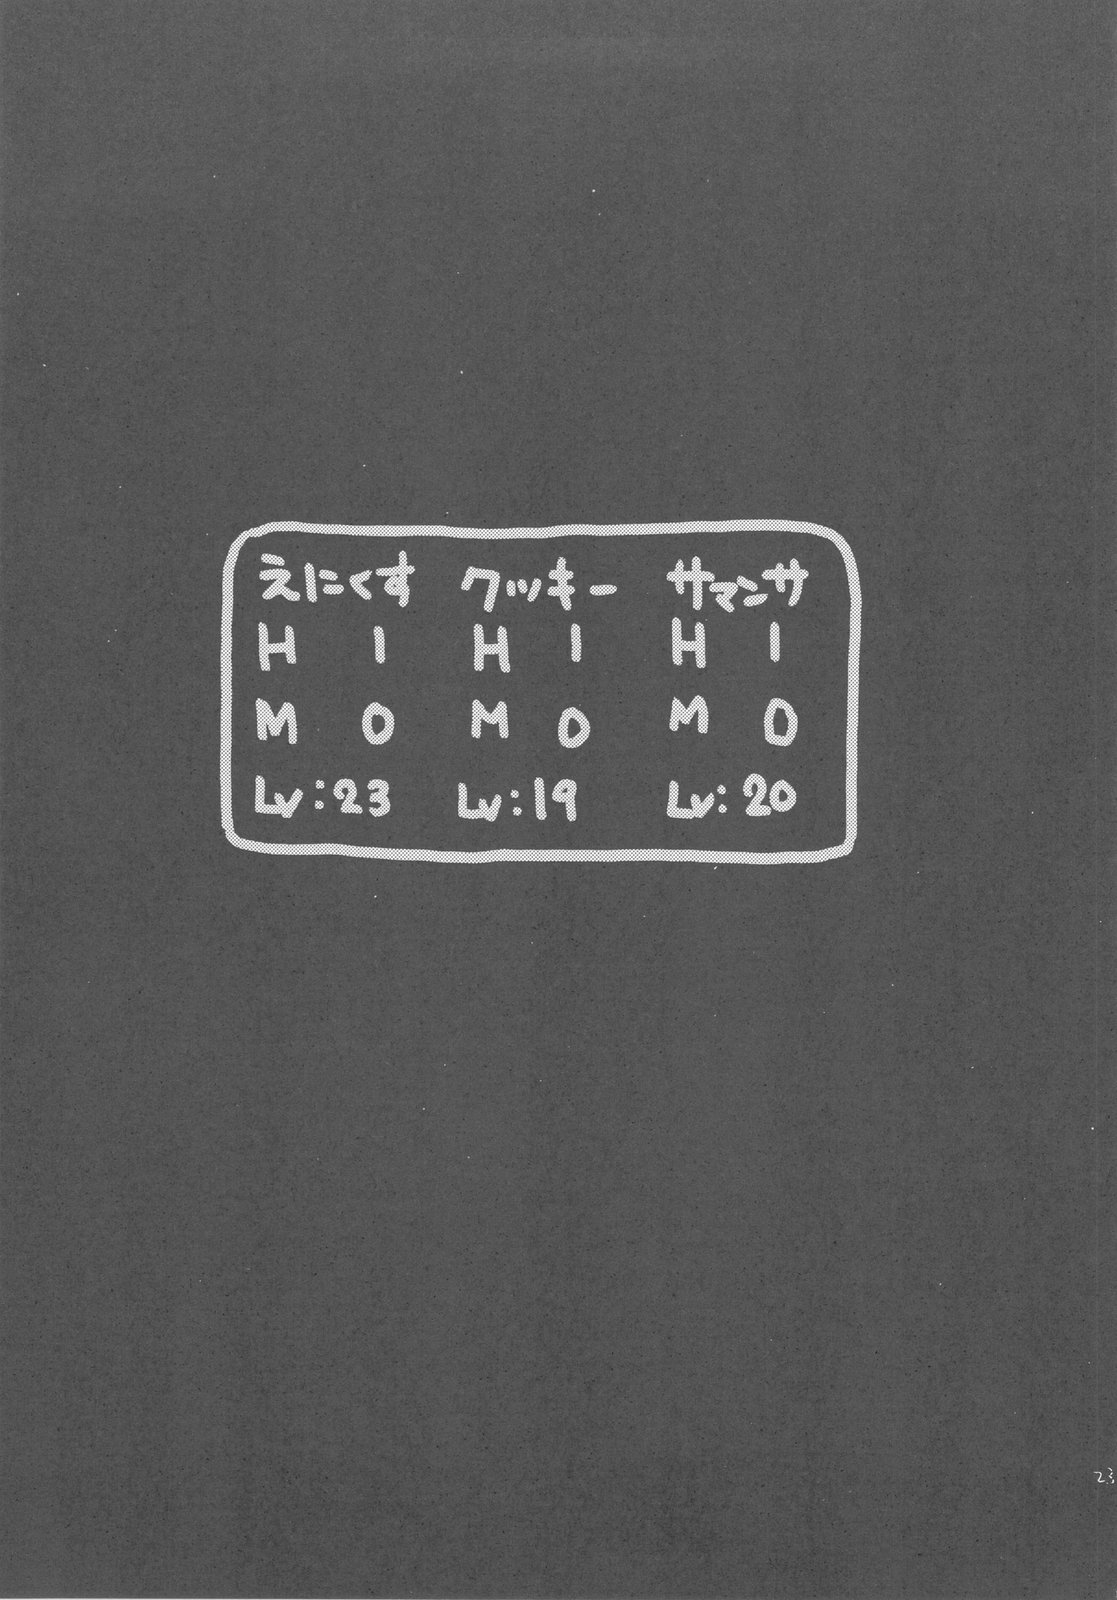 えにくす クッキー サマンサ
H 1 H 1 H 1
M 0 M 0 M 0
Lv:23 Lv:19 Lv:20
23